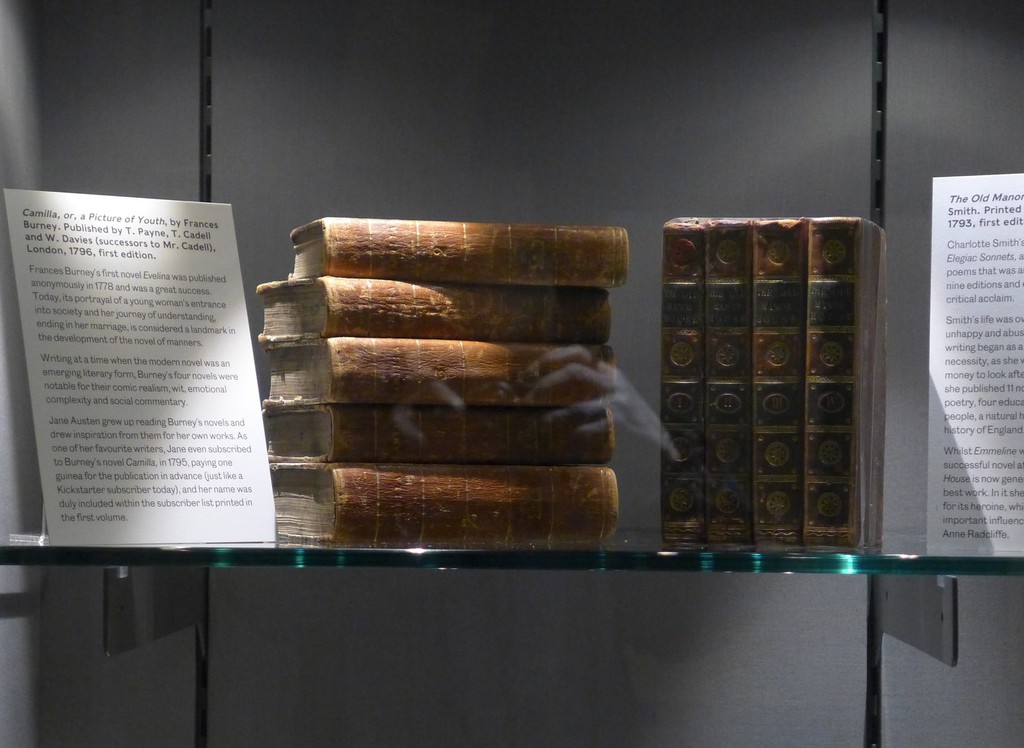 Camilla, or, a Picture of Youth, by Frances
Burney. Published by T. Payne, T. Cadell
and W. Davies (successors to Mr. Cadell),
London, 1796, first edition.
Frances Burney's first novel Evelina was published
anonymously in 1778 and was a great success.
Today, its portrayal of a young woman's entrance
into society and her journey of understanding,
ending in her marriage, is considered a landmark in
the development of the novel of manners.
Writing at a time when the modern novel was an
emerging literary form, Burney's four novels were
notable for their comic realism, wit, emotional
complexity and social commentary.
Jane Austen grew up reading Burney's novels and
drew inspiration from them for her own works. As
one of her favourite writers, Jane even subscribed
to Burney's novel Camilla, in 1795, paying one
guinea for the publication in advance (just like a
Kickstarter subscriber today), and her name was
duly included within the subscriber list printed in
the first volume.
I II III IV
The Old Manor
Smith. Printed
1793, first edit
Charlotte Smith's
Elegiac Sonnets, a
poems that was a
nine editions and
critical acclaim.
Smith's life was ov
unhappy and abus
writing began as a
necessity, as she w
money to look afte
she published 11 no
poetry, four educa
people, a natural h
history of England.
Whilst Emmeline w
successful novel at
House is now gene
best work. In it she
for its heroine, whi
important influenc
Anne Radcliffe.